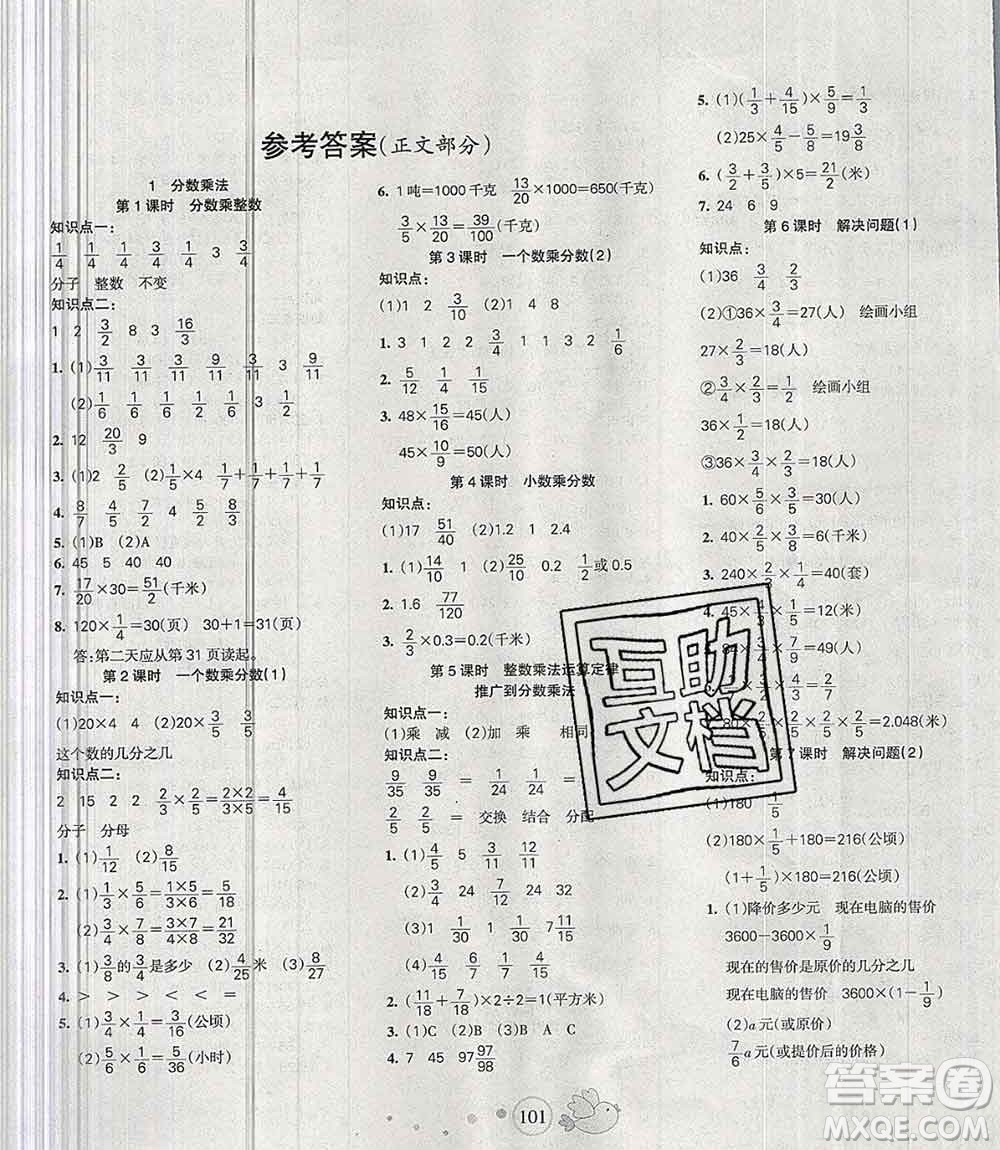 参考答案(正文部分)
1 分数乘法
第1课时 分数乘整数
知识点一:
1/4 1/4 1/4 3/4 1/4 3 3/4
分子 整数 不变
知识点二:
1 2 3/2 8 3 16/3
1. (1)3/11 3/11 3/11 9/11 3/11 3 9/11
(2)1/6 1/6 1/6 1/2 1/6 3 1/2
2. 12 20/3 9
3. (1)2 2/5 (2)1/5×4 1/5+1/5+1/5+1/5
4. 8/7 4/5 7/2 4 5/2 8/3
5. (1)B (2)A
6. 45 5 40 40
7. 17/20×30=51/2(千米)
8. 120×1/4=30(页) 30+1=31(页)
答:第二天应从第31页读起。
第2课时 一个数乘分数(1)
知识点一:
(1)20×4 4 (2)20×3/4 3/4
这个数的几分之几
知识点二:
2 15 2 2 2/3×2/5=2×2/3×5=4/15
分子 分母
1. (1)1/12 (2)8/15
2. (1)1/3×5/6=1×5/3×6=5/18
(2)3/4×7/8=3×7/4×8=21/32
3. (1)3/8的3/4是多少 (2)4/25米 (3)8/27
4. > > > < < =
5. (1)3/4×1/4=3/16(公顷)
(2)5/6×1/6=5/36(小时)
6. 1吨=1000千克 13/20×1000=650(千克)
3/5×13/20=39/100(千克)
第3课时 一个数乘分数(2)
知识点:
(1)1 2 3/10 (2)1 4 8
1. 3 1 2 2 3/4 1 1 3 2 1/6
2. 5/12 1/4 1/15
3. 48×15/16=45(人)
45×10/9=50(人)
第4课时 小数乘分数
知识点:
(1)17 51/40 (2)1.2 1 2.4
1. (1)14/10 1 (2)25/10 0.2 1/2或0.5
2. 1.6 77/120
3. 2/3×0.3=0.2(千米)
第5课时 整数乘法运算定律
推广到分数乘法
知识点一:
(1)乘 减 (2)加 乘 相同
知识点二:
9/35 9/35 = 1/24 1/24 =
2/5 2/5 = 交换 结合 分配
1. (1)4/5 5 3/11 4/11
(2)3/4 24 7/8 24
(3)1 1/30 1/30
(4)4/25 6/7 1/7 4/25
2. (11/18+7/18)×2÷2=1(平方米)
3. (1)C (2)B (3)B A C
4. 7 45 97 97/98
5. (1)(1/3+4/15)×5/9=1/3
(2)25×4/5-5/8=19 3/8
6. (3/2+3/5)×5=21/2(米)
7. 24 6 9
第6课时 解决问题(1)
知识点:
(1)36 3/4 2/3
(2)①36×3/4=27(人) 绘画小组
27×2/3=18(人)
②3/4×2/3=1/2 绘画小组
36×1/2=18(人)
③36×3/4×2/3=18(人)
1. 60×5/6×3/5=30(人)
2. 40×2/5×3/8=6(千米)
3. 240×2/3×1/4=40(套)
4. 45×4/5×1/3=12(米)
=2.048(米)
第7课时 解决问题(2)
知识点:
(1)180 1/5
(2)180×1/5+180=216(公顷)
(1+1/5)×180=216(公顷)
1. (1)降价多少元 现在电脑的售价
3600-3600×1/9
现在的售价是原价的几分之几
现在电脑的售价 3600×(1-1/9)
(2)a元(或原价)
7/6a元(或提价后的价格)
101
互助
文档
答案圈
MXQE.COM